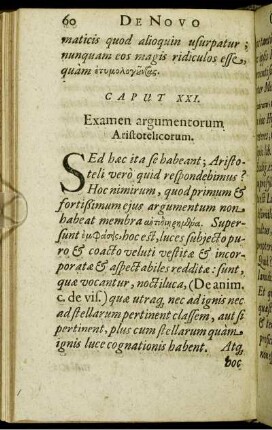 60 DE NOVO
maticis quod alioquin usurpatur;
nunquam eos magis ridiculos esse,
quam ἐτυμολογῶντας.
CAPUT XXI.
Examen argumentorum
Aristotelicorum.
SEd hæc ita se habeant; Aristo-
teli verò quid respondebimus?
Hoc nimirum, quod primum &
fortissimum ejus argumentum non
habeat membra Super-
sunt ἐμφάσεις, hoc est, luces subjecto pu-
ro & coacto veluti vestitæ & incor-
poratæ & aspectabiles redditæ: sunt,
quæ vocantur, noctiluca, (De anim.
c. de vis.) quæ utraq, nec ad ignis nec
ad stellarum pertinent classem, aut si
pertinent, plus cum stellarum quàm
ignis luce cognationis habent. Atq,
hoc